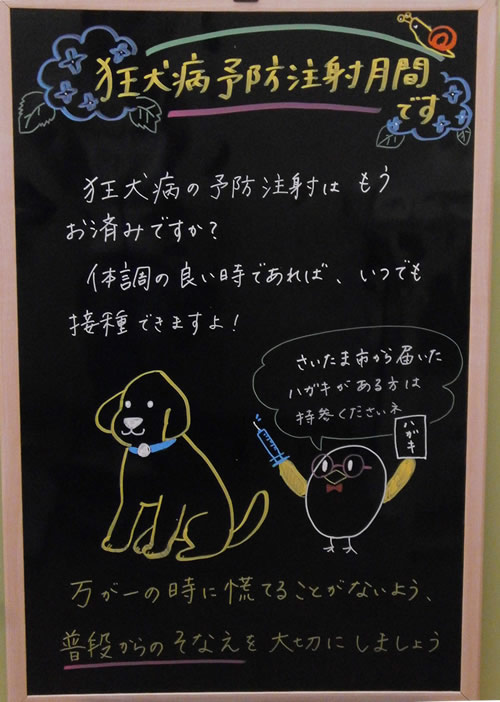 狂犬病予防注射月間
です
狂犬病の予防注射は もう
お済みですか？
体調の良い時であれば、いつでも
接種できますよ！
さいたま市から届いた
ハガキがある方は
持参くださいネ
ハガキ
万が一の時に慌てることがないよう、
普段からのそなえを大切にしましょう